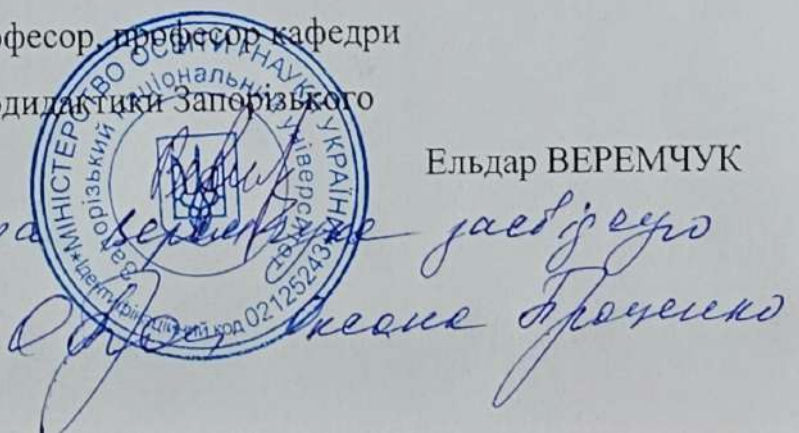 офесор, професор кафедри
одидактики Запорізького
Ельдар ВЕРЕМЧУК
МІНІСТЕРСТВО ОСВІТИ І НАУКИ УКРАЇНИ
Запорізький національний університет
ідентифікаційний код 02125243
засвідчую
Оксана Проценко